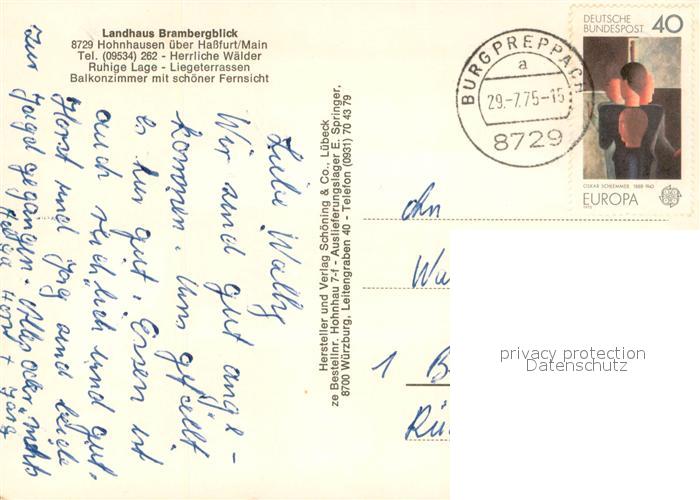 Landhaus Brambergblick
8729 Hohnhausen über Haßfurt/Main
Tel. (09534) 262 - Herrliche Wälder
Ruhige Lage - Liegeterrassen
Balkonzimmer mit schöner Fernsicht
Liebe Wally
Wir sind gut ange-
kommen. Uns gefällt
es hier gut. Essen ist
auch reichlich und gut.
Horst und Jörg sind beide
zur Jagd gegangen. Alles
Horst + Jörg
Hersteller und Verlag Schöning & Co., Lübeck
ze Bestellnr. Hohnhau 7-f - Auslieferungslager E. Springer,
8700 Würzburg, Leitengraben 40 - Telefon (0931) 70 43 79
BURGPREPPACH
a
29.-7.75-15
8729
DEUTSCHE
BUNDESPOST 40
OSKAR SCHLEMMER 1888-1943
EUROPA
1975
An
1 B
Rü
privacy protection
Datenschutz